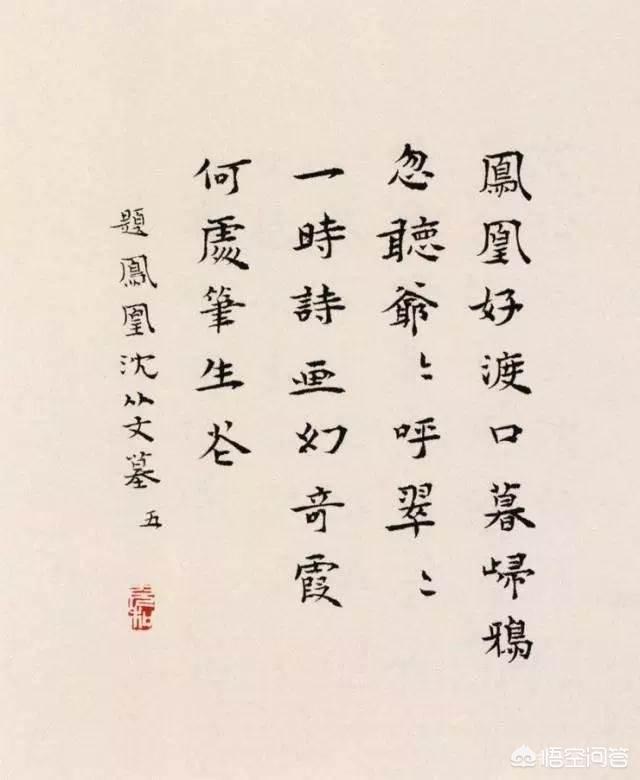 鳳凰好渡口暮歸鴉
忽聽爺〻呼翠〻
一時詩画幻奇霞
何處筆生花
題鳳凰沈从文墓 五
悟空问答